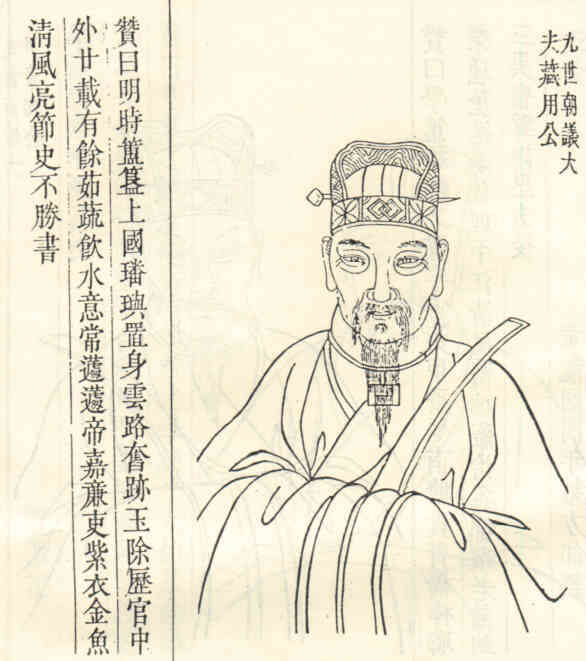 九世朝議大
夫藏用公
贊曰明時簠簋上國璠璵置身雲路奮跡玉除歷官中
外廿載有餘茹蔬飲水意常蘧蘧帝嘉廉吏紫衣金魚
淸風亮節史不勝書